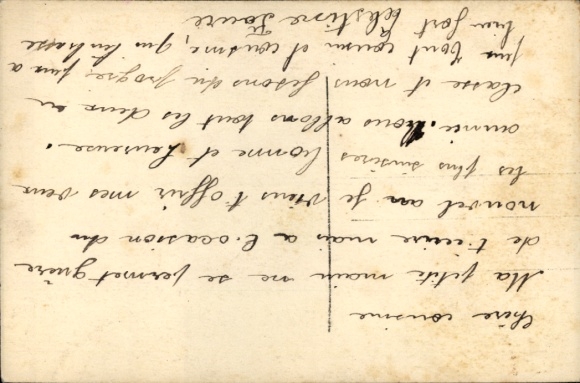 Chère cousine
Ma petite main ne se permet guère
de t'ecrire mais a l'ocasion du
nouvel an je viens t'offrir mes veux
les plus sinsères bonne et heureuse
année. Nous allons tout les deux en
classe et nous fesons du progrès
ton cousin et cousine, qui t'embrasse
bien fort Célestine